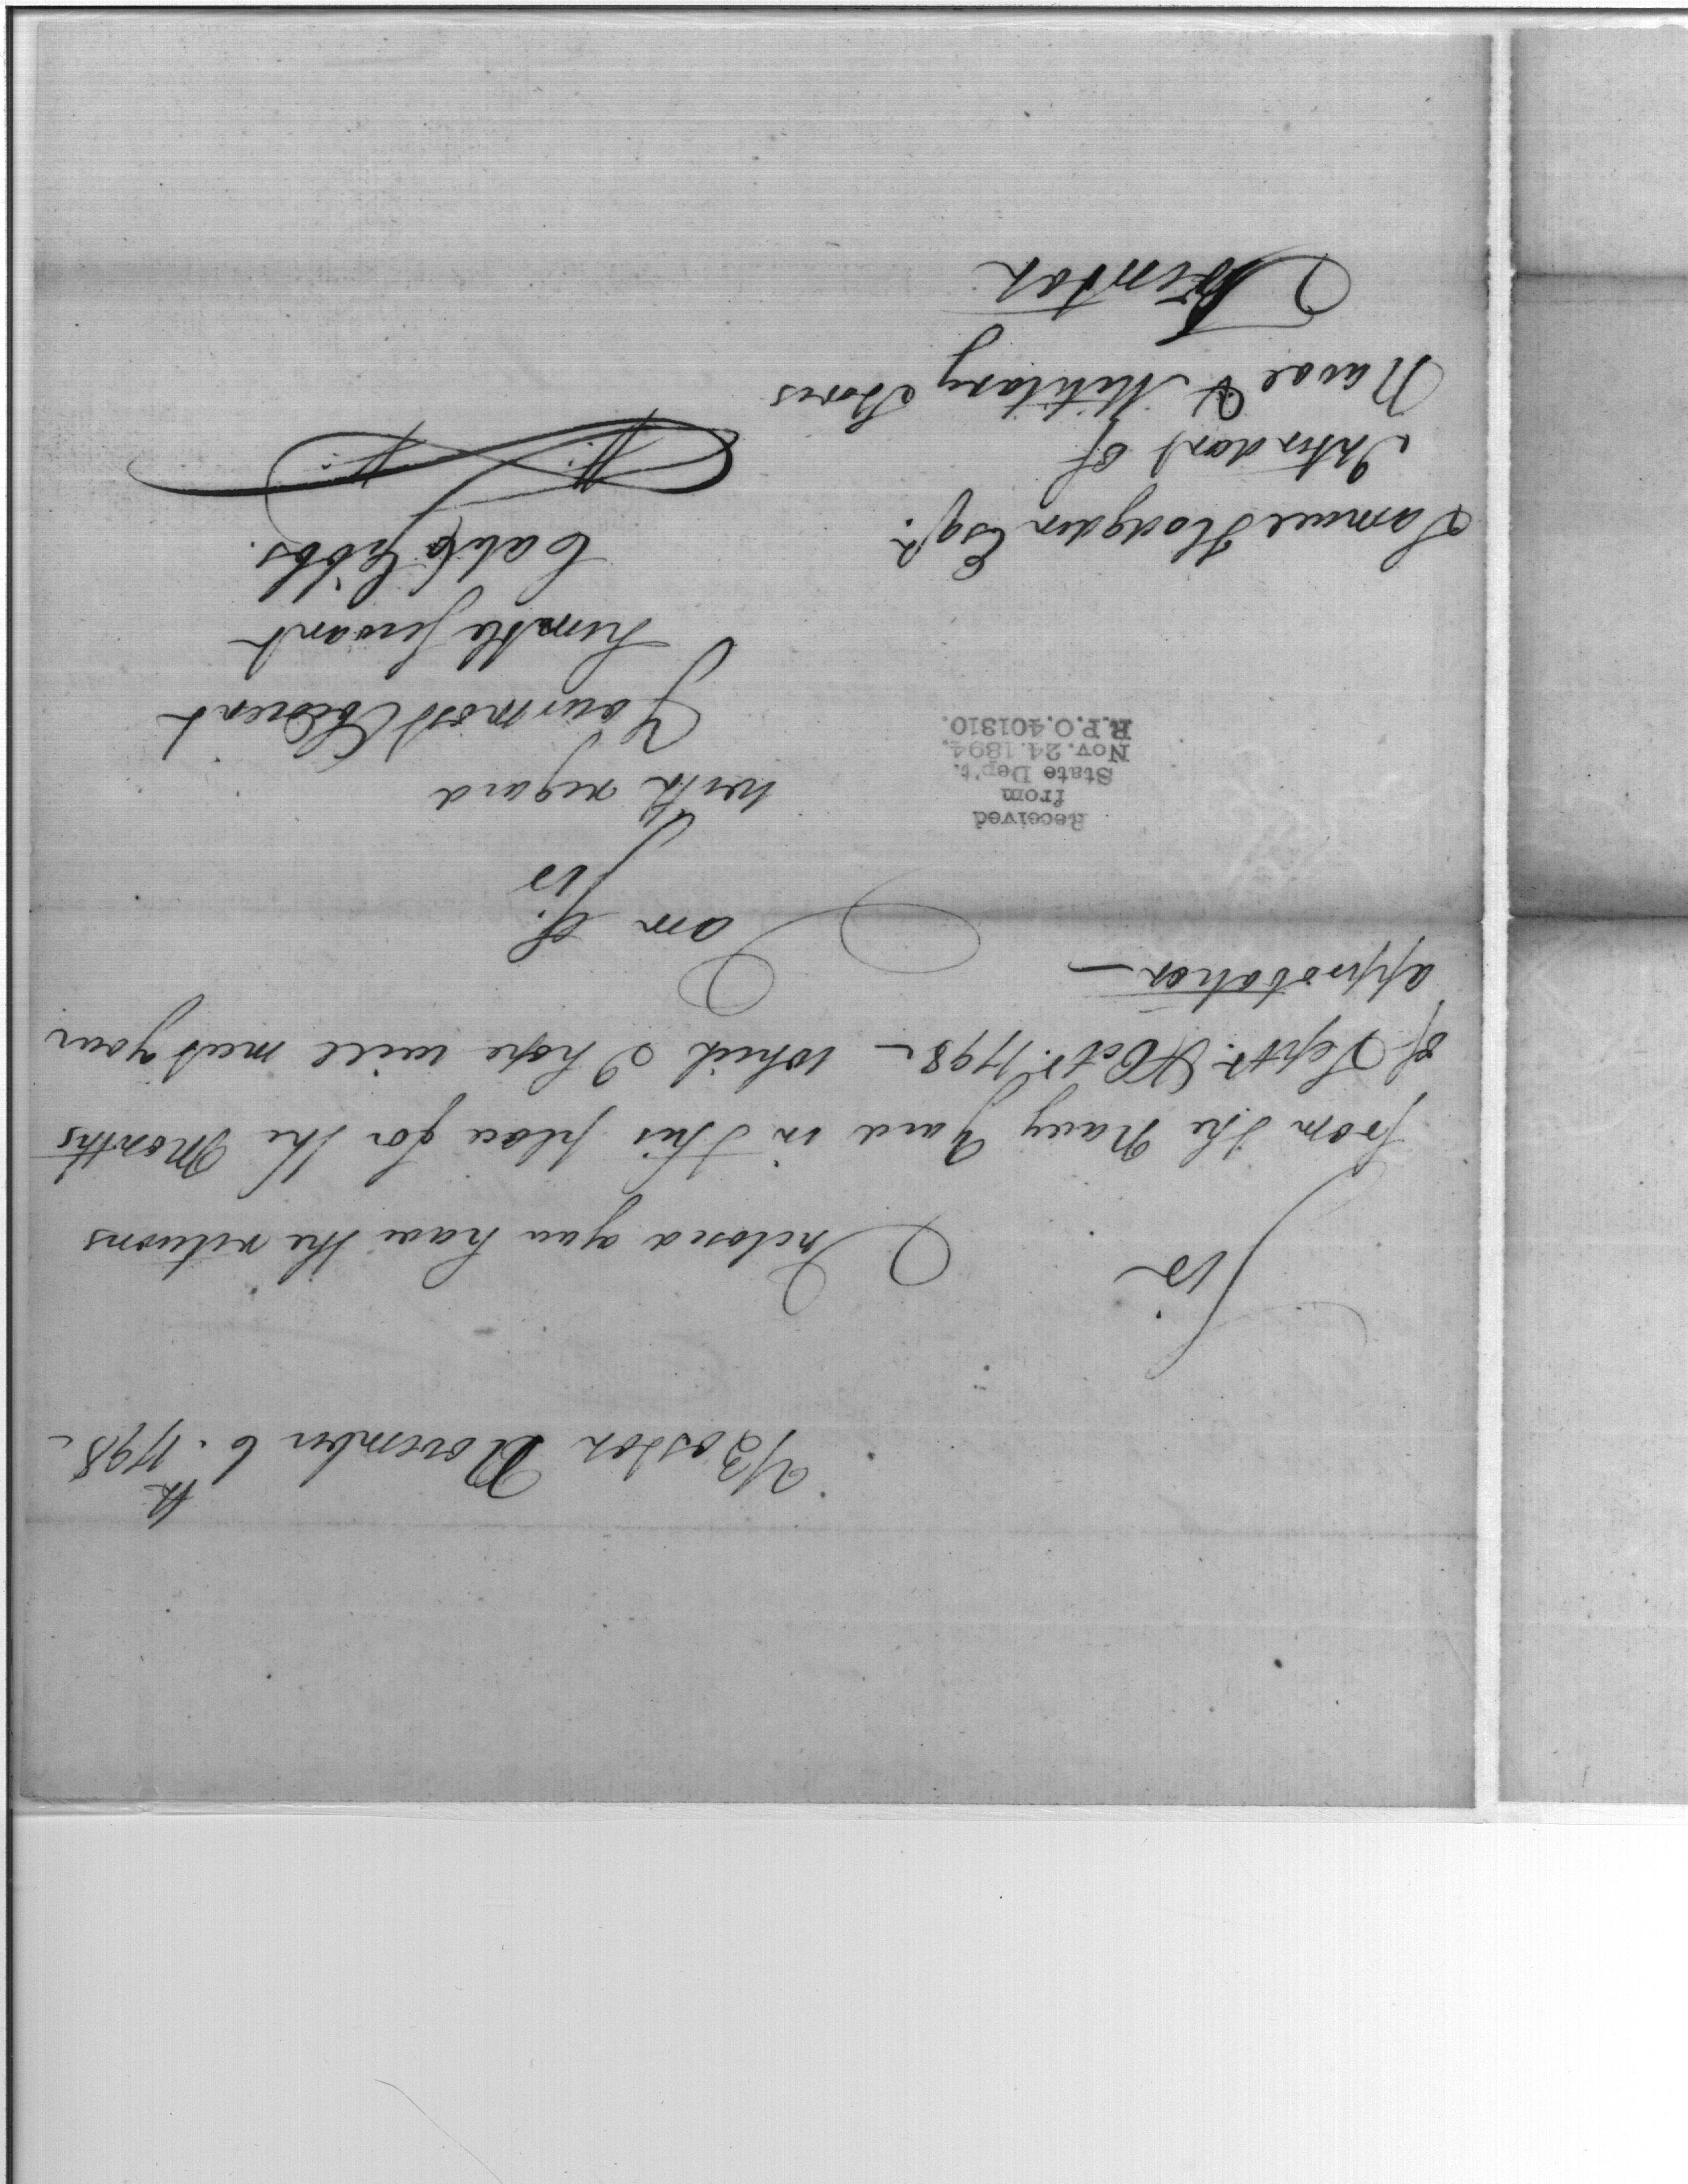 Boston November 6th. 1798 –
Sir
Inclosed you have the returns
from the Navy Yard in this place for the Months
of Septr. & Octr. 1798 – which I hope will meet your
approbation –
I am
Sir
with regard
Your most Obedient
humble servant
Caleb Gibbs.
Received
from
State Dep't.
Nov. 24. 1894.
R.P.O. 401310.
Samuel Hodgdon Esqr.
Intendant of
Naval & Military Stores
Trenton